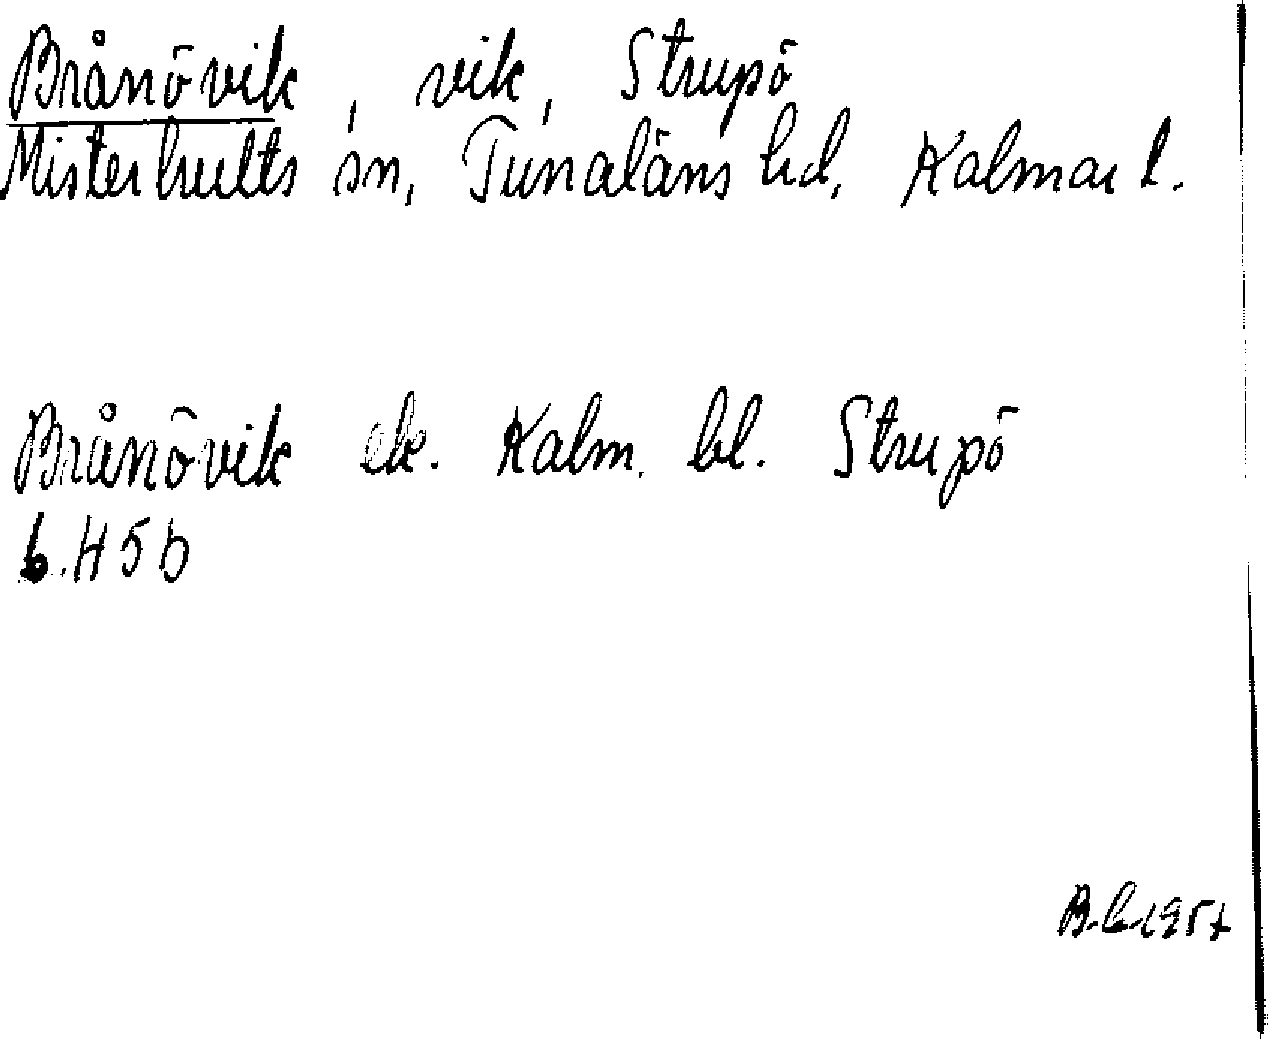 Brånövik, vik, Strupö
Misterhults sn, Tunaläns hd, Kalmar l.
Brånövik ek. Kalm. bl. Strupö
6.H5b
B.L. 1957